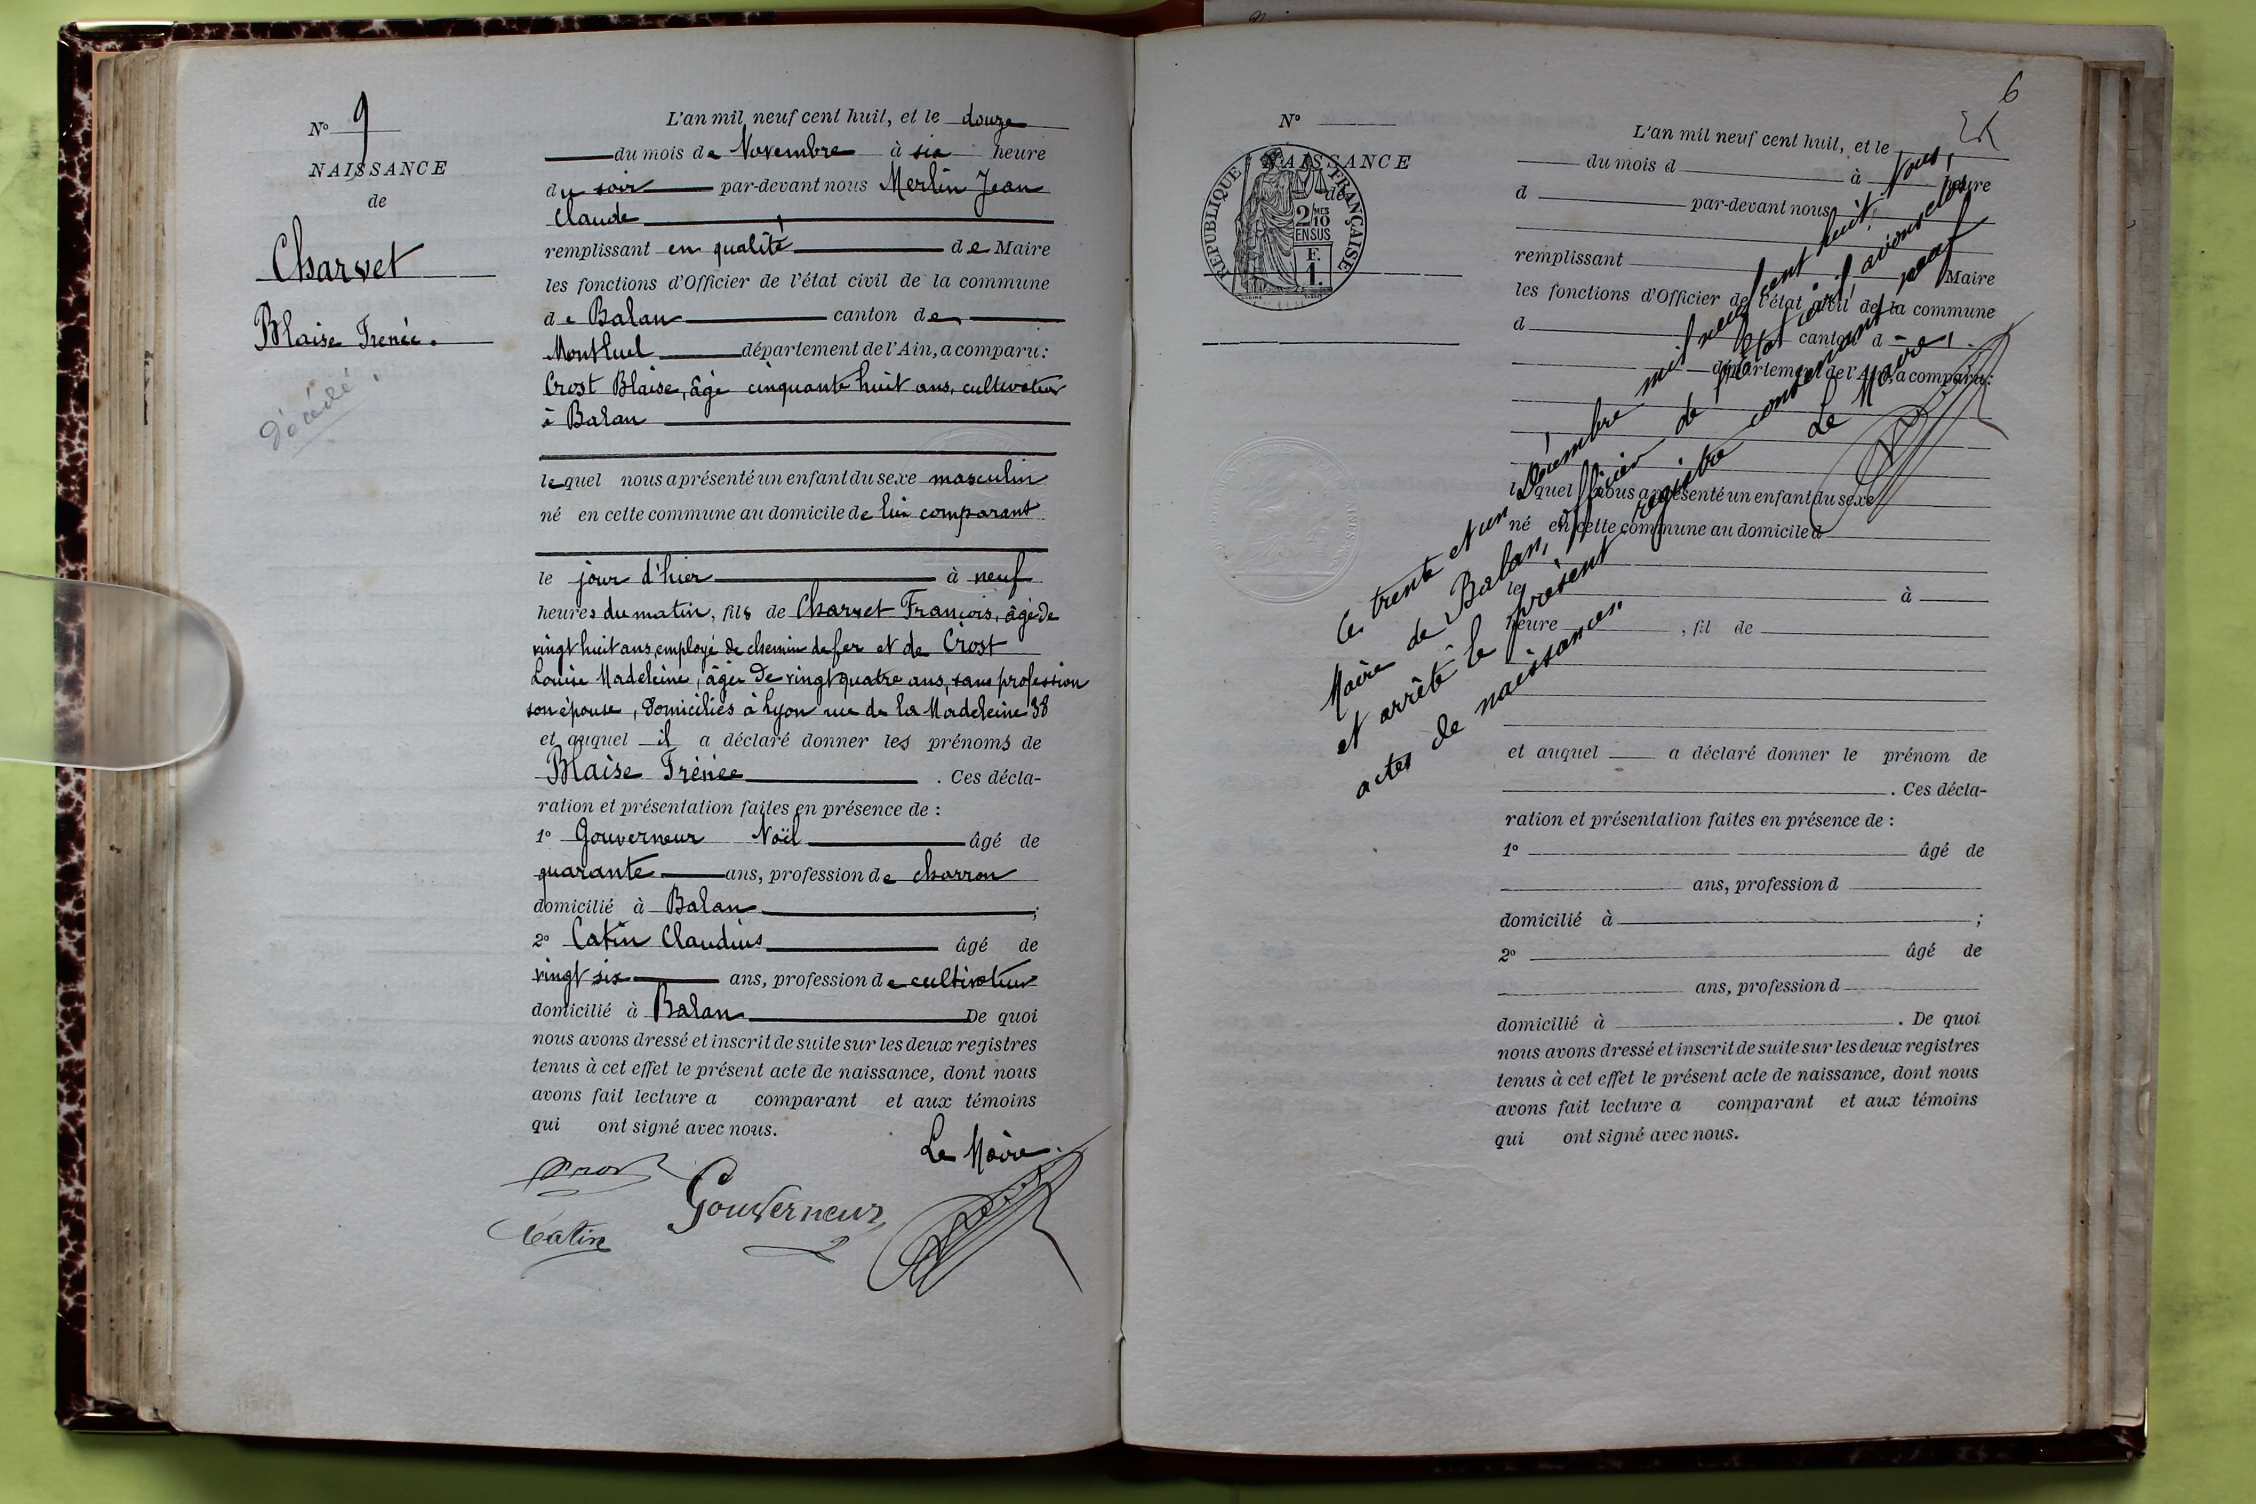 N° 9
NAISSANCE
de
Charvet
Blaise Irenée.
décédé
L'an mil neuf cent huit, et le douze
du mois de Novembre à six heure
du soir par-devant nous Merlin Jean
Claude
remplissant en qualité de Maire
les fonctions d'Officier de l'état civil de la commune
de Balan canton de
Montluel département de l'Ain, a comparu:
Crost Blaise, âgé cinquante huit ans, cultivateur
à Balan
lequel nous a présenté un enfant du sexe masculin
né en cette commune au domicile de lui comparant
le jour d'hier à neuf
heures du matin, fils de Charvet François, âgé de
vingt huit ans, employé de chemin de fer et de Crost
Louise Madeleine, âgée de vingt quatre ans, sans profession
son épouse, domiciliés à Lyon rue de la Madeleine 38
et auquel il a déclaré donner les prénoms de
Blaise Irénée . Ces décla-
ration et présentation faites en présence de :
1° Gouverneur Noël âgé de
quarante ans, profession de charron
domicilié à Balan ;
2° Catin Claudius âgé de
vingt six ans, profession de cultivateur
domicilié à Balan De quoi
nous avons dressé et inscrit de suite sur les deux registres
tenus à cet effet le présent acte de naissance, dont nous
avons fait lecture a comparant et aux témoins
qui ont signé avec nous.
Le Maire.
Crost
Gouverneur
Catin
6
N°
NAISSANCE
de
RÉPUBLIQUE FRANÇAISE
2/10 MES
EN SUS
F.
1.
L'an mil neuf cent huit, et le
du mois d à heure
d par-devant nous
remplissant Maire
les fonctions d'Officier de l'état civil de la commune
d canton d
département de l'Ain, a comparu:
lequel nous a présenté un enfant du sexe
né en cette commune au domicile d
le à
heure , fil de
et auquel a déclaré donner le prénom de
. Ces décla-
ration et présentation faites en présence de :
1° âgé de
ans, profession d
domicilié à ;
2° âgé de
ans, profession d
domicilié à . De quoi
nous avons dressé et inscrit de suite sur les deux registres
tenus à cet effet le présent acte de naissance, dont nous
avons fait lecture a comparant et aux témoins
qui ont signé avec nous.
Ce trente et un Décembre mil neuf cent huit, Nous,
Maire de Balan, officier de l'état civil, avons clos
et arrêté le présent registre contenant neuf
actes de naissances.
Le Maire,